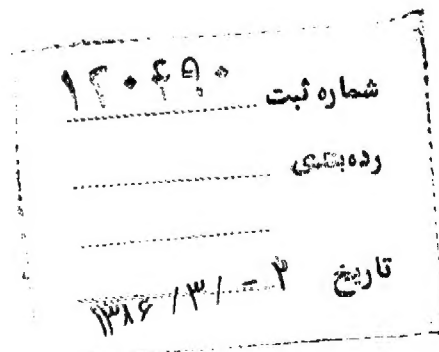 شماره ثبت ۱۲۰۴۹۰
رده‌بندی
تاریخ ۱۳۸۶ /۳/ - ۲